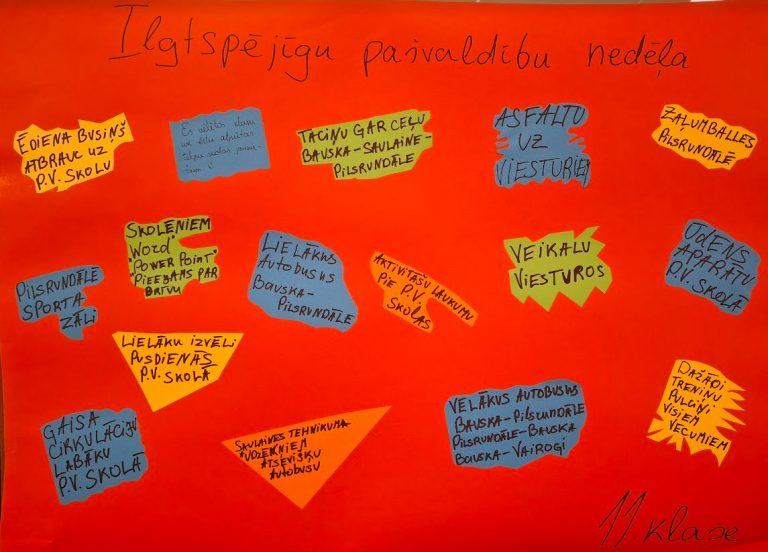 Ilgtspējīgu pašvaldību nedēļa
ĒDIENA BUSIŅŠ
ATBRAUC UZ
P.V. SKOLU
Es vēlētos
un ērtu atpūtas
TACIŅU GAR CEĻU
BAUSKA-SAULAINE-
PILSRUNDĀLE
ASFALTU
UZ
VIESTURIEM
ZAĻUMBALLES
PILSRUNDĀLĒ
PILSRUNDĀLĒ
SPORTA
ZĀLI
SKOLĒNIEM
"WORD"
"POWER POINT"
PIEEJAMS PAR
BRĪVU
LIELĀKUS
AUTOBUSUS
BAUSKA-
PILSRUNDĀLE
AKTIVITĀŠU LAUKUMU
PIE P.V.
SKOLAS
VEIKALU
VIESTUROS
ŪDENS
APARĀTU
P.V. SKOLĀ
LIELĀKU IZVĒLI
PUSDIENĀS
P.V. SKOLĀ
GAISA
CIRKULĀCIJU
LABĀKU
P.V. SKOLĀ
SAULAINES TEHNIKUMA
AUDZĒKŅIEM
ATSEVIŠĶU
AUTOBUSU
VĒLĀKUS AUTOBUSUS
BAUSKA-PILSRUNDĀLE
PILSRUNDĀLE-BAUSKA
BAUSKA-VAIROGI
DAŽĀDI
TRENIŅU
PULCIŅI
VISIEM
VECUMIEM
11. klase